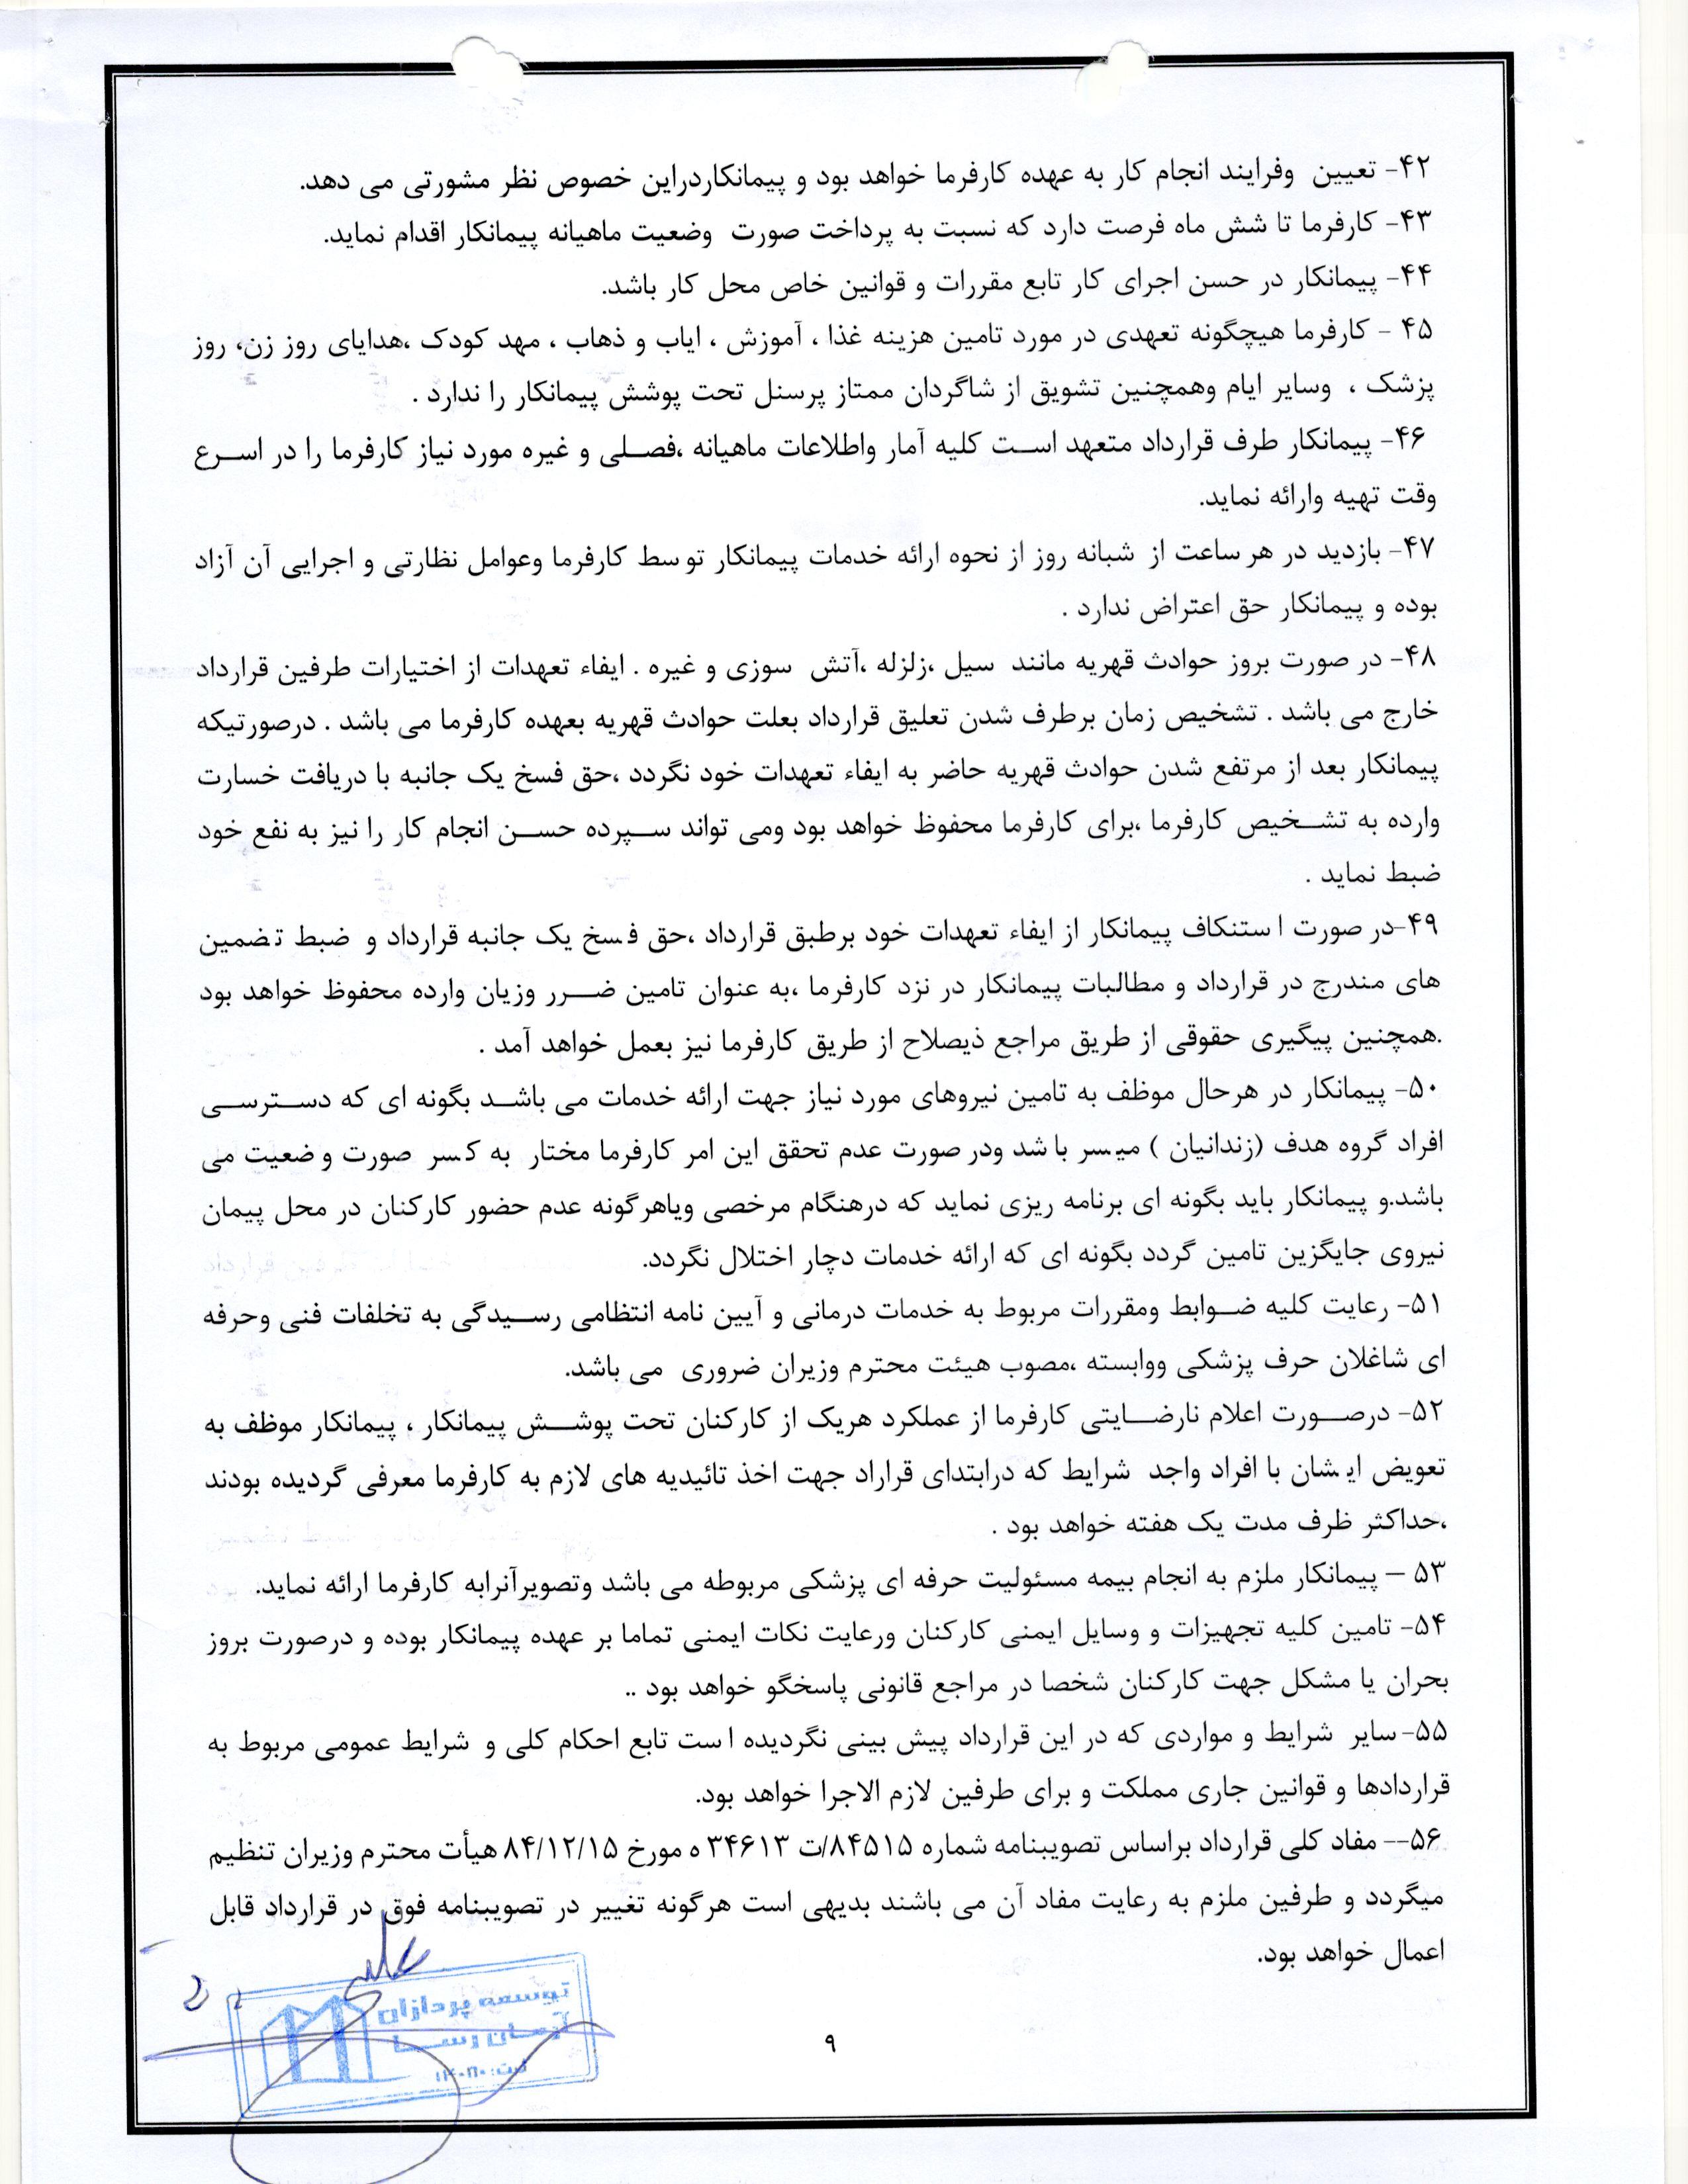 ۴۲- تعیین وفرایند انجام کار به عهده کارفرما خواهد بود و پیمانکاردراین خصوص نظر مشورتی می دهد.
۴۳- کارفرما تا شش ماه فرصت دارد که نسبت به پرداخت صورت وضعیت ماهیانه پیمانکار اقدام نماید.
۴۴- پیمانکار در حسن اجرای کار تابع مقررات و قوانین خاص محل کار باشد.
۴۵ - کارفرما هیچگونه تعهدی در مورد تامین هزینه غذا ، آموزش ، ایاب و ذهاب ، مهد کودک ،هدایای روز زن، روز
پزشک ، وسایر ایام وهمچنین تشویق از شاگردان ممتاز پرسنل تحت پوشش پیمانکار را ندارد .
۴۶- پیمانکار طرف قرارداد متعهد است کلیه آمار واطلاعات ماهیانه ،فصلی و غیره مورد نیاز کارفرما را در اسرع
وقت تهیه وارائه نماید.
۴۷- بازدید در هر ساعت از شبانه روز از نحوه ارائه خدمات پیمانکار توسط کارفرما وعوامل نظارتی و اجرایی آن آزاد
بوده و پیمانکار حق اعتراض ندارد .
۴۸- در صورت بروز حوادث قهریه مانند سیل ،زلزله ،آتش سوزی و غیره . ایفاء تعهدات از اختیارات طرفین قرارداد
خارج می باشد . تشخیص زمان برطرف شدن تعلیق قرارداد بعلت حوادث قهریه بعهده کارفرما می باشد . درصورتیکه
پیمانکار بعد از مرتفع شدن حوادث قهریه حاضر به ایفاء تعهدات خود نگردد ،حق فسخ یک جانبه با دریافت خسارت
وارده به تشخیص کارفرما ،برای کارفرما محفوظ خواهد بود ومی تواند سپرده حسن انجام کار را نیز به نفع خود
ضبط نماید .
۴۹-در صورت استنکاف پیمانکار از ایفاء تعهدات خود برطبق قرارداد ،حق فسخ یک جانبه قرارداد و ضبط تضمین
های مندرج در قرارداد و مطالبات پیمانکار در نزد کارفرما ،به عنوان تامین ضرر وزیان وارده محفوظ خواهد بود
.همچنین پیگیری حقوقی از طریق مراجع ذیصلاح از طریق کارفرما نیز بعمل خواهد آمد .
۵۰- پیمانکار در هرحال موظف به تامین نیروهای مورد نیاز جهت ارائه خدمات می باشد بگونه ای که دسترسی
افراد گروه هدف (زندانیان ) میسر باشد ودر صورت عدم تحقق این امر کارفرما مختار به کسر صورت وضعیت می
باشد.و پیمانکار باید بگونه ای برنامه ریزی نماید که درهنگام مرخصی ویاهرگونه عدم حضور کارکنان در محل پیمان
نیروی جایگزین تامین گردد بگونه ای که ارائه خدمات دچار اختلال نگردد.
۵۱- رعایت کلیه ضوابط ومقررات مربوط به خدمات درمانی و آیین نامه انتظامی رسیدگی به تخلفات فنی وحرفه
ای شاغلان حرف پزشکی ووابسته ،مصوب هیئت محترم وزیران ضروری می باشد.
۵۲- درصورت اعلام نارضایتی کارفرما از عملکرد هریک از کارکنان تحت پوشش پیمانکار ، پیمانکار موظف به
تعویض ایشان با افراد واجد شرایط که درابتدای قراراد جهت اخذ تائیدیه های لازم به کارفرما معرفی گردیده بودند
،حداکثر ظرف مدت یک هفته خواهد بود .
۵۳ – پیمانکار ملزم به انجام بیمه مسئولیت حرفه ای پزشکی مربوطه می باشد وتصویرآنرابه کارفرما ارائه نماید.
۵۴- تامین کلیه تجهیزات و وسایل ایمنی کارکنان ورعایت نکات ایمنی تماما بر عهده پیمانکار بوده و درصورت بروز
بحران یا مشکل جهت کارکنان شخصا در مراجع قانونی پاسخگو خواهد بود ..
۵۵- سایر شرایط و مواردی که در این قرارداد پیش بینی نگردیده است تابع احکام کلی و شرایط عمومی مربوط به
قراردادها و قوانین جاری مملکت و برای طرفین لازم الاجرا خواهد بود.
۵۶-- مفاد کلی قرارداد براساس تصویبنامه شماره ۸۴۵۱۵/ت ۳۴۶۱۳ ه مورخ ۸۴/۱۲/۱۵ هیأت محترم وزیران تنظیم
میگردد و طرفین ملزم به رعایت مفاد آن می باشند بدیهی است هرگونه تغییر در تصویبنامه فوق در قرارداد قابل
اعمال خواهد بود.
توسعه پردازان
آرمان رسا
ثبت:
۹